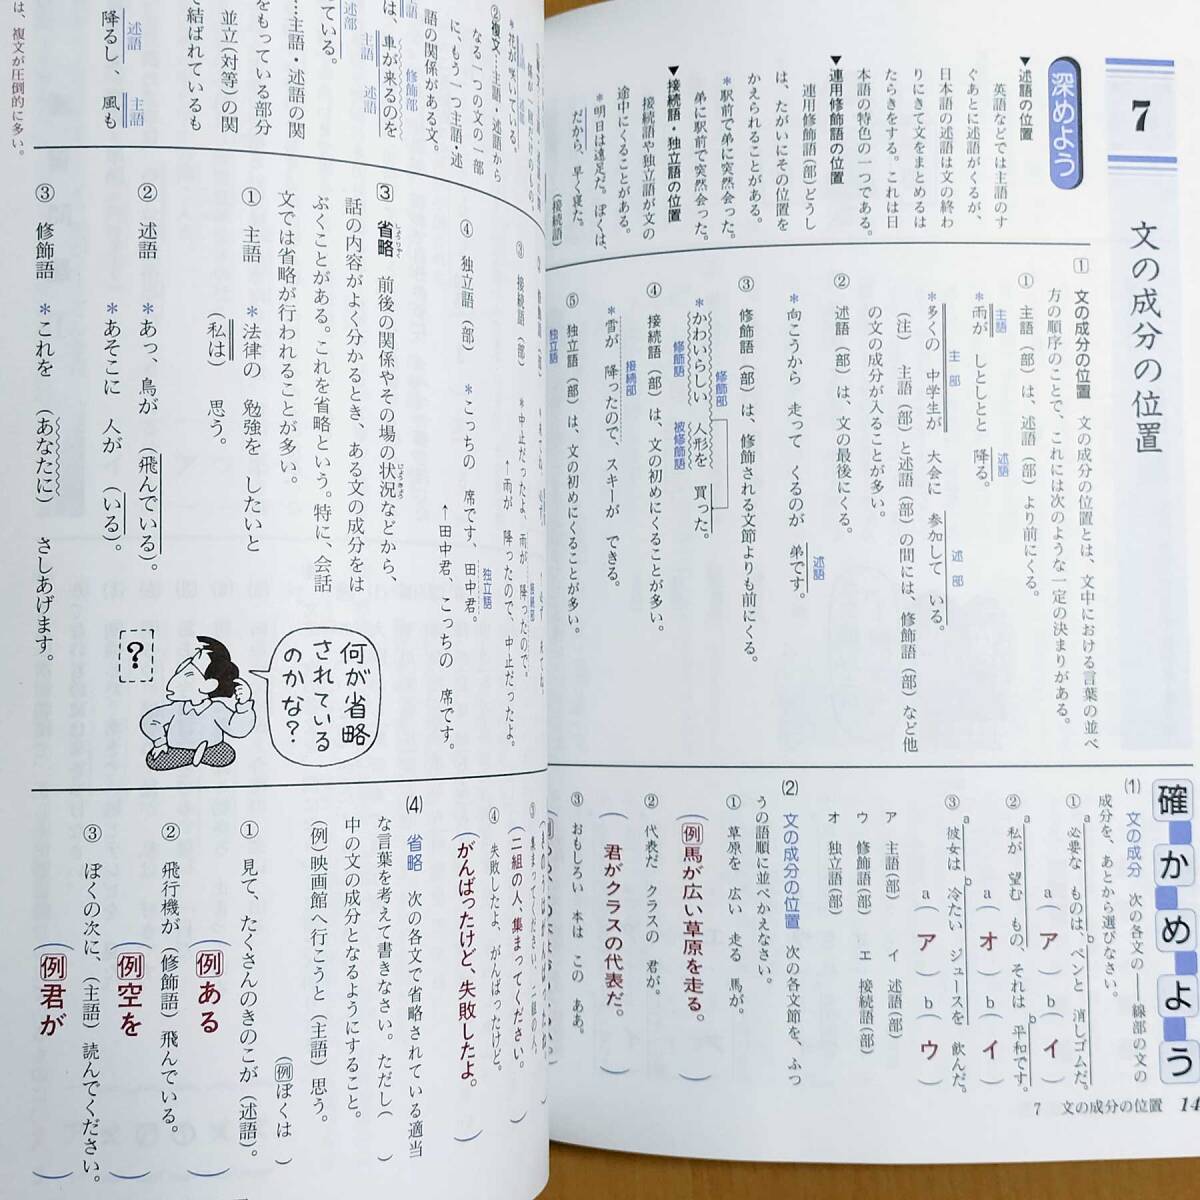 7
文の成分の位置
深めよう
▼述語の位置
英語などでは主語のす
ぐあとに述語がくるが、
日本語の述語は文の終わ
りにきて文をまとめるは
たらきをする。これは日
本語の特色の一つである。
▼連用修飾語の位置
連用修飾語(部)どうし
は、たがいにその位置を
かえられることがある。
＊駅前で弟に突然会った。
弟に駅前で突然会った。
▼接続語・独立語の位置
接続語や独立語が文の
途中にくることがある。
＊明日は遠足だ。ぼくは、
だから、早く寝た。
(接続語)
1 文の成分の位置 文の成分の位置とは、文中における言葉の並べ
方の順序のことで、これには次のような一定の決まりがある。
① 主語(部)は、述語(部)より前にくる。
主語 述語
＊雨が しとしとと 降る。
主部 述部
＊多くの 中学生が 大会に 参加して いる。
(注) 主語(部)と述語(部)の間には、修飾語(部)など他
の文の成分が入ることが多い。
② 述語(部)は、文の最後にくる。
述語
＊向こうから 走って くるのが 弟です。
③ 修飾語(部)は、修飾される文節よりも前にくる。
修飾部
＊かわいらしい 人形を 買った。
修飾語 被修飾語
④ 接続語(部)は、文の初めにくることが多い。
接続部
＊雪が 降ったので、スキーが できる。
⑤ 独立語(部)は、文の初めにくることが多い。
独立語
確かめよう
(1) 文の成分 次の各文の――線部の文の
成分を、あとから選びなさい。
a b
①必要な ものは、ペンと 消しゴムだ。
a(ア) b(イ)
a b
②私が 望む もの、それは 平和です。
a(オ) b(イ)
a b
③彼女は 冷たい ジュースを 飲んだ。
a(ア) b(ウ)
ア 主語(部) イ 述語(部)
ウ 修飾語(部) エ 接続語(部)
オ 独立語(部)
(2) 文の成分の位置 次の各文節を、ふつ
うの語順に並べかえなさい。
① 草原を 広い 走る 馬が。
(例馬が広い草原を走る。)
② 代表だ クラスの 君が。
(君がクラスの代表だ。)
③ おもしろい 本は この ああ。
7 文の成分の位置 14
＊花が咲いている。
②複文…主語・述語から
なる一つの文の一部
に、もう一つ主語・述
語の関係がある文。
修飾部
は、車が来るのを
主語 述語
ている。
述部
…主語・述語の関
をもっている部分
並立(対等)の関
で結ばれているも
述語 主語
降るし、風も
は、複文が圧倒的に多い。
③ 接続語(部) ＊中止だったよ、雨が 降ったので。
接続部
↑雨が 降ったので、中止だったよ。
④ 独立語(部) ＊こっちの 席です、田中君。
独立語
↑田中君、こっちの 席です。
3 省略 前後の関係やその場の状況などから、
しょうりゃく
じょうきょう
話の内容がよく分かるとき、ある文の成分をは
ぶくことがある。これを省略という。特に、会話
文では省略が行われることが多い。
① 主語 ＊法律の 勉強を したいと
(私は) 思う。
② 述語 ＊あっ、鳥が (飛んでいる)。
＊あそこに 人が (いる)。
③ 修飾語 ＊これを (あなたに) さしあげます。
何が省略
されている
のかな?
?
③ 集まってください、二組の人。
(二組の人、集まってください。)
④ 失敗したよ、がんばったけど。
(がんばったけど、失敗したよ。)
(4) 省略 次の各文で省略されている適当
な言葉を考えて書きなさい。ただし( )
中の文の成分となるようにすること。
(例) 映画館へ行こうと(主語)思う。
(例ぼくは)
① 見て、たくさんのきのこが(述語)。
(例ある)
② 飛行機が(修飾語)飛んでいる。
(例空を)
③ ぼくの次に、(主語)読んでください。
(例君が)